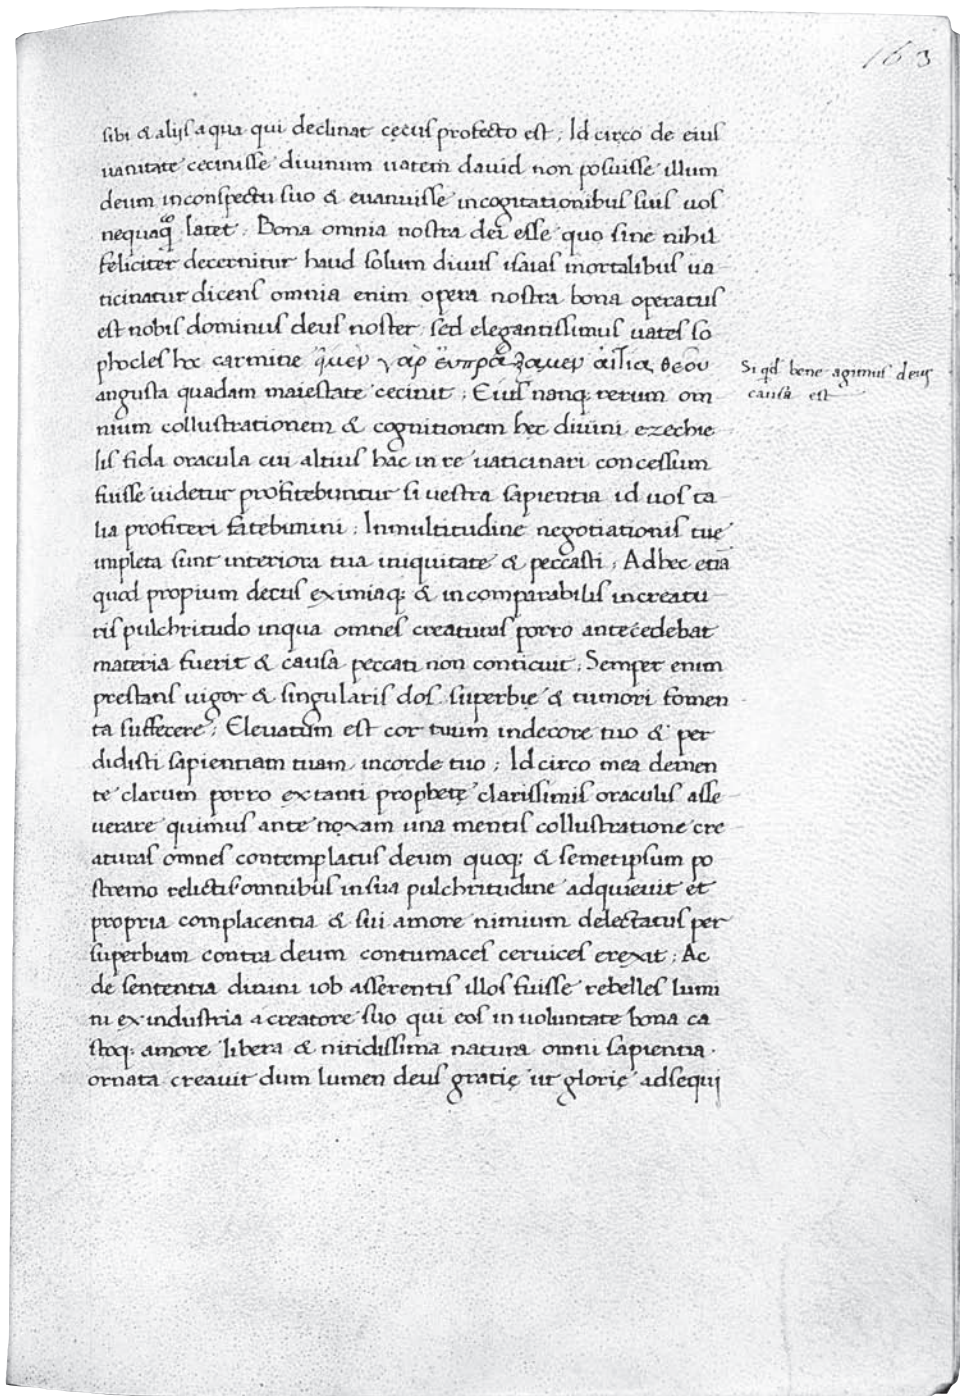 163
sibi & alijs a qua qui declinat cęcus profecto est ; Id circo de eius
uanitate cecinisse diuinum uatem dauid non posuisse illum
deum in conspectu suo & euanuisse in cogitationibus suis uos
nequaq̃ latet . Bona omnia nostra dei esse quo sine nihil
feliciter decernitur haud solum diuus isaias mortalibus ua
ticinatur dicens omnia enim opera nostra bona operatus
est nobis dominus deus noster . sed elegantissimus uates so
phocles hoc carmine γὰρ ἐυπράξαμεν ἀιτία θεου
angusta quadam maiestate cecinit ; Eius nanq; rerum om
nium collustrationem & cognitionem hec diuini ezechie
lis fida oracula cui altius hac in re uaticinari concessum
fuisse uidetur profitebuntur si uestra sapientia id uos ta
lia profiteri fatebimini ; In multitudine negotiationis tuę
impleta sunt interiora tua iniquitate & peccasti ; Ad hec etiā
quod propium decus eximiaq; & incomparabilis in creatu
ris pulchritudo in qua omnes creaturas porro antecedebat
materia fuerit & causa peccati non conticuit ; Semper enim
prestans uigor & singularis dos superbię & tumori fomen
ta suffecere ; Eleuatum est cor tuum in decore tuo & per
didisti sapientiam tuam in corde tuo ; Id circo mea de men
te clarum porro ex tanti prophetę clarissimis oraculis asse
uerare quimus ante noxam una mentis collustratione cre
aturas omnes contemplatus deum quoq; & semet ipsum po
stremo relictis omnibus in sua pulchritudine adquieuit et
propria complacentia & sui amore nimium delectatus per
superbiam contra deum contumaces ceruices erexit ; Ac
de sententia diuini iob asserentis illos fuisse rebelles lumi
ni ex industria a creatore suo qui eos in uoluntate bona ca
stoq; amore libera & nitidissima natura omni sapientia .
ornata creauit dum lumen deus gratię ut glorię adsequi
Si qd bene agimus deus
causa est